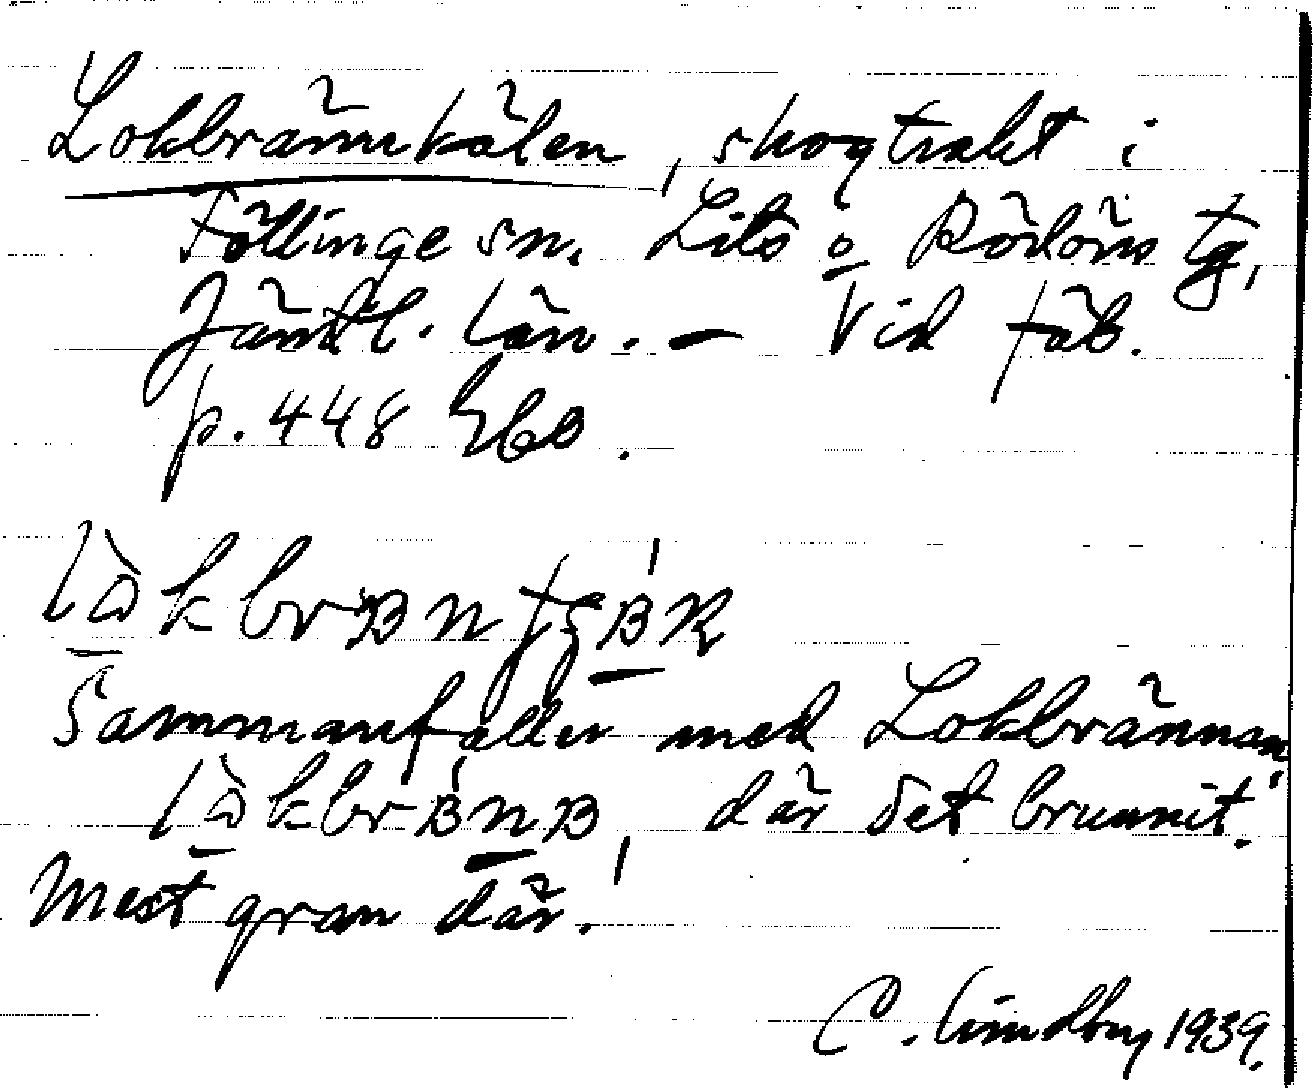 Lokbrännkälen, skogtrakt i
Föllinge sn. Lits o Rödöns tg,
Jämtl. län. – Vid fäb.
p. 448 EbO.
Sammanfaller med Lokbrännan,
där det brunnit.
Mest gran där.
C. Lindberg 1939.